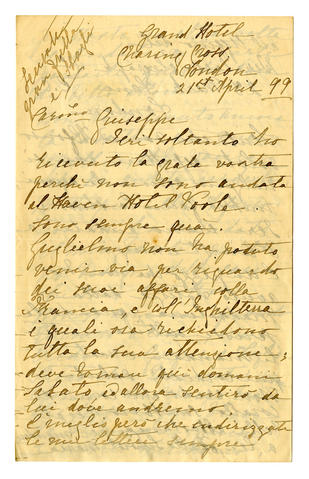 Grand Hotel
Charing Cross
London
21st April 99
Scusate
gran fretta
e
Carmo Giuseppe
Ieri soltanto ho
ricevuto la grata vostra
perchè non sono andata
al Haven Hotel Poole.
Sono sempre qua.
Guglielmo non ha potuto
venir via per riguardo
dei suoi affari colla
Francia, e coll'Inghilterra
i quali ora richiedono
tutta la sua attenzione;
deve tornare qui domani
Sabato, ed allora sentirò da
lui dove andremo.
È meglio però che indirizzate
le mie lettere sempre